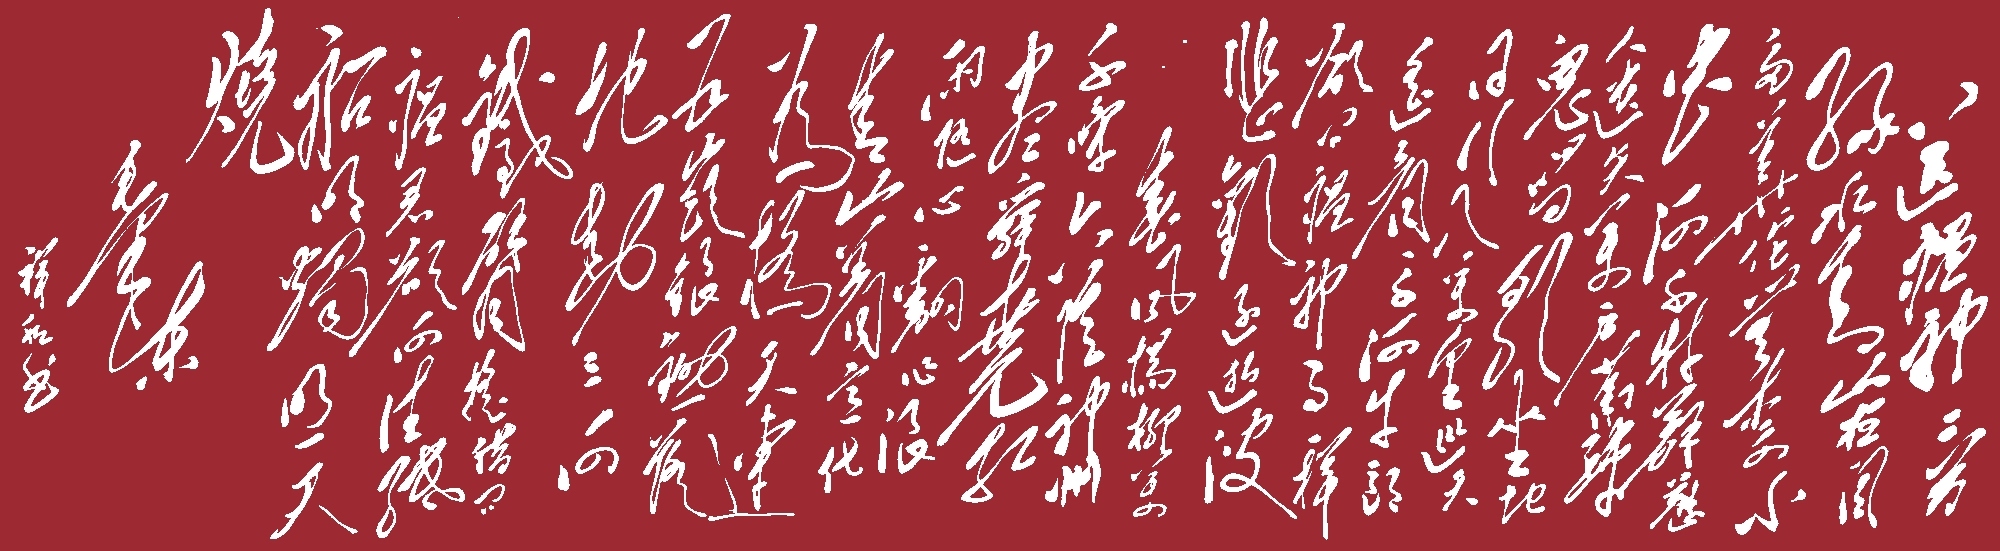 送瘟神二首
绿水青山枉自
多華佗無奈小
虫何千村薜荔
人遗矢萬户萧疏
鬼唱歌坐地
日行八萬里巡天
遥看一千河牛郎
欲问瘟神事一样
悲歡逐逝波
春风楊柳萬
千條六億神州
盡舜堯红
雨随心翻作浪
青山着意化
為橋天連
五嶺銀鋤落
地動三河
鐵臂摇借问
瘟君欲何往紙
船明燭照天
燒
毛澤東
祥和书